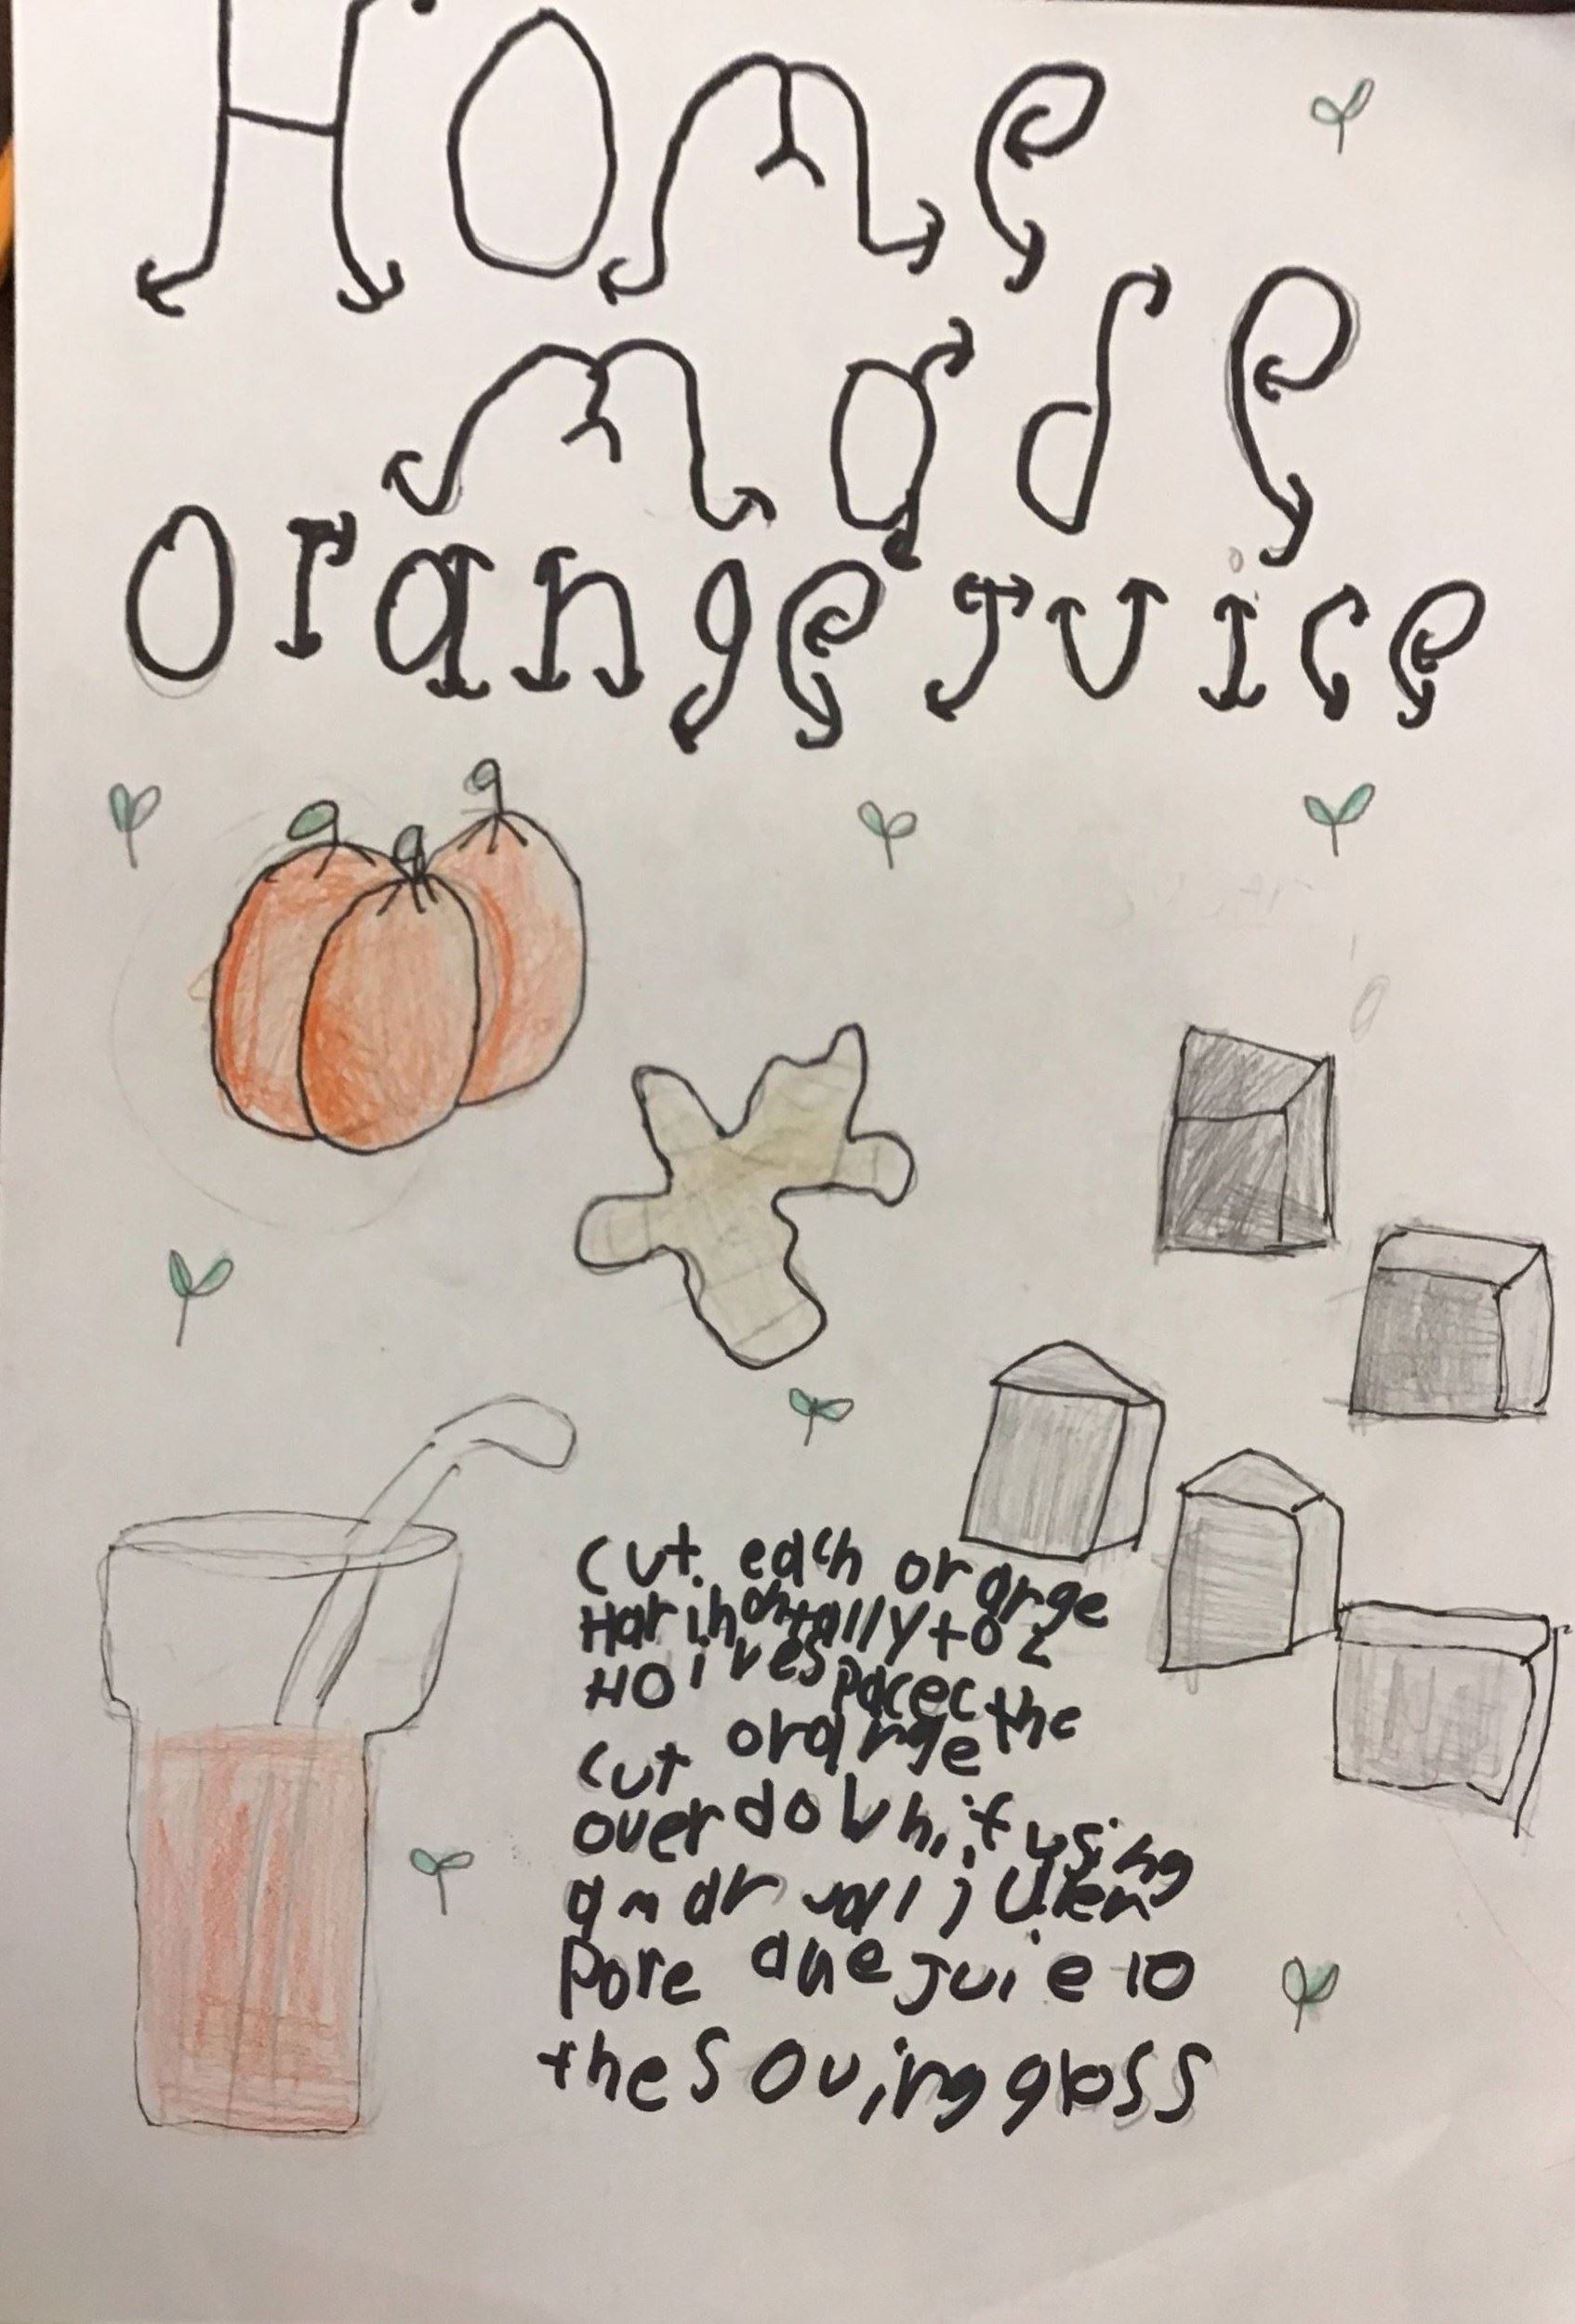 Home
made
orange juice
cut each orange
Harihontally to 2
Hoives pacec the
cut orange
over down, it using
a mar jui
Pore ane juie to
the Soving gloss